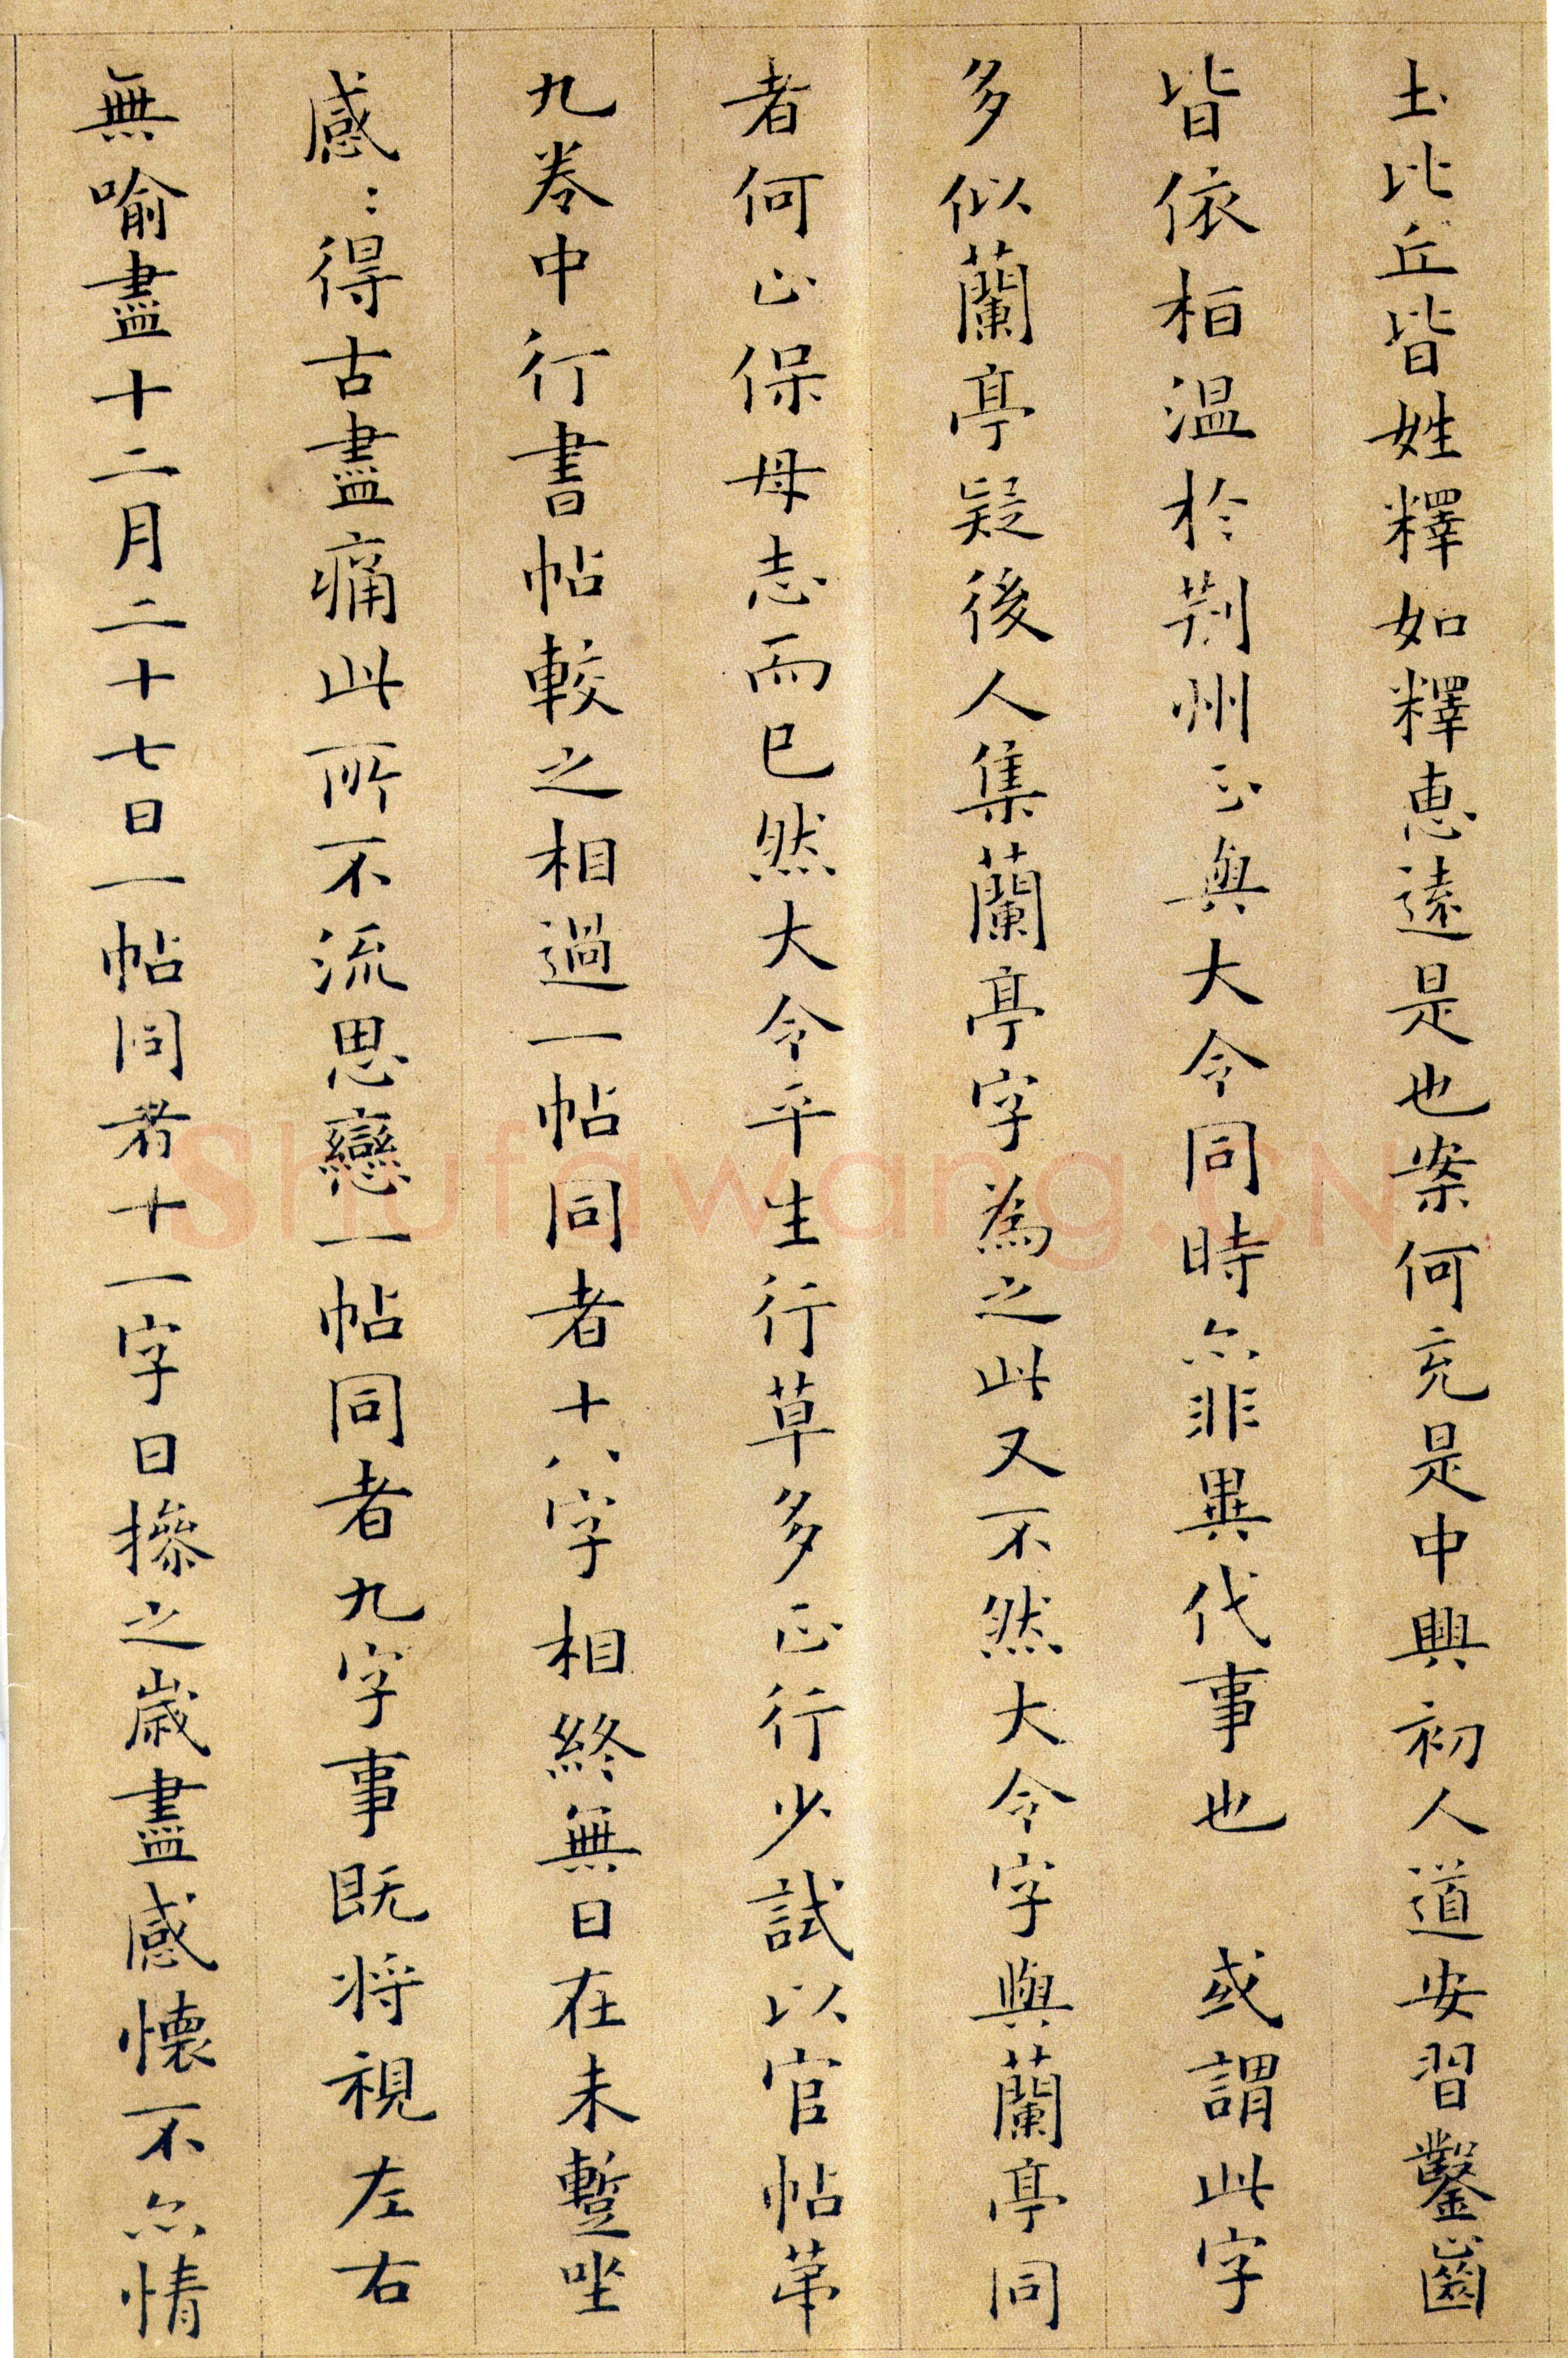 土比丘皆姓釋如釋惠遠是也案何充是中興初人道安習鑿齒
皆依桓温於荆州正與大令同時亦非異代事也 或謂此字
多似蘭亭疑後人集蘭亭字為之此又不然大令字與蘭亭同
者何止保母志而已然大令平生行草多正行少試以官帖苐
九卷中行書帖較之相過一帖同者十八字相終無日在未蹔坐
感:得古盡痛此所不流思戀一帖同者九字事既将視左右
無喻盡十二月二十七日一帖同者十一字日摻之歲盡感懷不亦情
Shufawang.CN